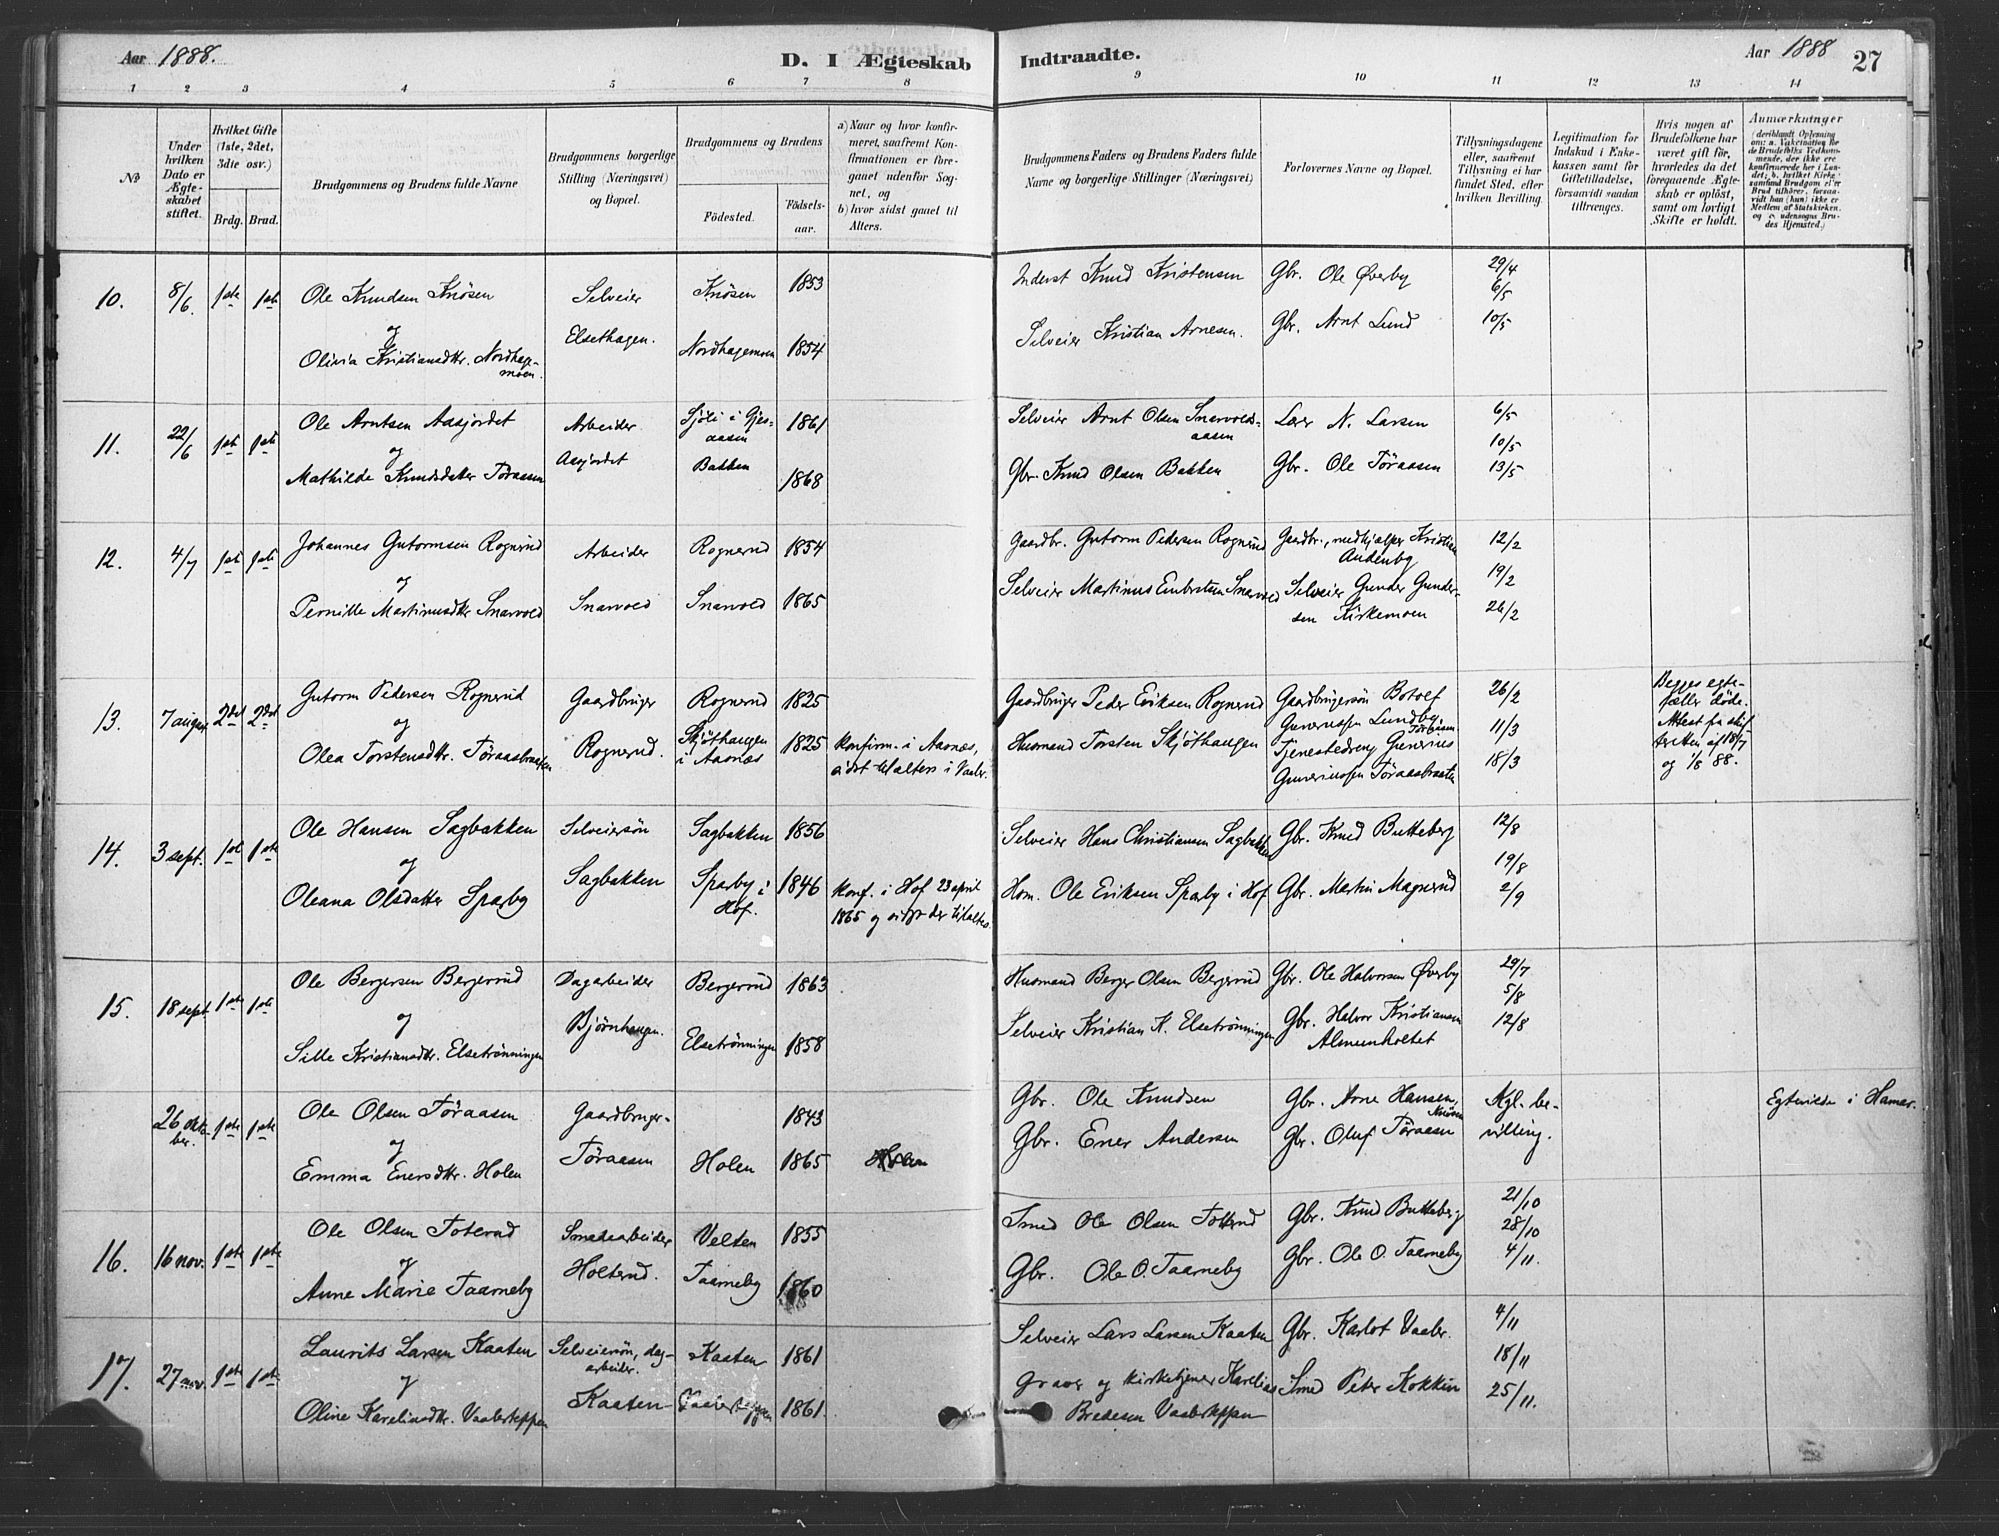 Aar 1888.
D. I Ægteskab
Indtraadte.
Aar 1888
27
1 2 3 4 5 6 7 8 9 10 11 12 13 14
No
Under hvilken Dato er Ægteskabet stiftet.
Hvilket Gifte (1ste, 2det, 3die osv.)
Brdg. Brud.
Brudgommens og Brudens fulde Navne
Brudgommens borgerlige Stilling (Næringsvei) og Bopæl.
Brudgommens og Brudens
Födested.
Födsels-aar.
a) Naar og hvor konfirmeret, saafremt Konfirmationen er foregaaet udenfor Sognet, og
b) hvor sidst gaaet til Alters.
Brudgommens Faders og Brudens Faders fulde Navne og borgerlige Stillinger (Næringsvei)
Forlovernes Navne og Bopæl.
Tillysningsdagene eller, saafremt Tillysning ei har fundet Sted, efter hvilken Bevilling.
Legitimation for Indskud i Enkekassen samt for Giftetilladelse, forsaavidt saadan tiltrænges.
Hvis nogen af Brudefolkene har været gift för, hvorledes da det foregaaende Ægteskab er oplöst, samt om lovligt Skifte er holdt.
Anmærkninger
(deriblandt Oplysning om: a. Vakcination for de Brudefolks Vedkommende, der ikke ere konfirmerede her i Landet; b. hvilket Kirkesamfund Brudgom el'er Brud tilhörer, forsaavidt han (hun) ikke er Medlem af Statskirken, og c. udensogns Brudes Hjemsted.)
10. 8/6 1ste 1ste
Ole Knudsen Knösen
og
Olivia Kristiansdtr. Nordhagemoen.
Selveier
Elsethagen.
Knösen 1853
Nordhagemoen 1854
Inderst Knud Kristensen
Selveier Kristian Arnesen.
Gbr. Ole Øverby
Gbr. Arnt Lund
29/4
6/5
10/5
11. 22/6 1ste 1ste
Ole Arntsen Aasjordet
og
Mathilde Knudsdatter Töraasen
Arbeider
Aasjordet
Sjöli i Gjesaasen 1861
Bakken 1868
Selveier Arnt Olsen Snarvoldsaasen
Gbr. Knud Olsen Bakken
Lærer N. Larsen
Gbr. Ole Töraasen
6/5
10/5
13/5
12. 4/7 1ste 1ste
Johannes Gutormsen Rognerud
og
Pernille Martinusdtr Snarvold
Arbeider
Snarvold
Rognerud 1854
Snarvold 1865
Gaardbr. Gutorm Pedersen Rognerud
Selveier Martinus Embretsen Snarvold
Gaardbr., medhjælper Kristian Audenby
Selveier Gunder Gundersen Kirkemoen
12/2
19/2
26/2
13. 7 august 2det 2det
Gutorm Pedersen Rognerud
og
Olea Torstensdtr. Töraasbraaten
Gaardbruger
Rognerud.
Rognerud 1825
Skjöthaugen i Aasnæs 1825
konfirm. i Aasnæs,
sidst til alters i Vaaler.
Gaardbruger Peder Eriksen Rognerud
Husmand Torsten Skjöthaugen
Gaardbrugersön Botolf
Gunerussen Lundby
Töraasen
Tjenestedreng Gunerius
Gunerinssen Töraasbraaten
26/2
11/3
18/3
Begges egtefæller döde.
Attest fra skifteretten af 18/7
og 1/8 88.
14. 3 sept. 1ste 1ste
Ole Hansen Sagbakken
og
Oleana Olsdatter Sparby
Selveiersön
Sagbakken
Sagbakken 1856
Sparby i Hof. 1846
Konf. i Hof 23 april
1865 og sidst der til alters.
Selveier Hans Christiansen Sagbakken
Hsm. Ole Eriksen Sparby i Hof
Gbr. Knud Butteberg
Gbr. Martin Magnerud
12/8
19/8
2/9
15. 18 sept. 1ste 1ste
Ole Bergersen Bergerud
og
Sille Kristiansdtr. Elsetrönningen
Dagarbeider
Björnhaugen.
Bergerud 1863
Elsetrönningen 1858
Husmand Berger Olsen Bergerud
Selveier Kristian K. Elsetrönningen
Gbr. Ole Halvorsen Øverby
Gbr. Halvor Kristiansen Almenholtet
29/7
5/8
12/8
26 oktober. 1ste 1ste
Ole Olsen Töraasen
og
Emma Enersdtr. Holen
Gaardbruger
Töraasen
1843
Holen 1865
Gbr. Ole Knudsen
Gbr. Ener Andersen
Gbr. Arne Hansen, Knösen
Gbr. Oluf Töraasen
Kgl. bevilling.
Egteviede i Hamar.
16. 16 nov. 1ste 1ste
Ole Olsen Toterud
og
Anne Marie Taarneby
Smedarbeider
Holterud.
Velten 1855
Taarneby 1860
Smed Ole Olsen Toterud
Gbr. Ole O. Taarneby
Gbr. Knud Butteberg
Gbr. Ole O. Taarneby
21/10
28/10
4/11.
17. 27 nov. 1ste 1ste
Laurits Larsen Kaaten
og
Oline Kareliusdtr. Vaalerteppen
Selveiersön, dagarbeider.
Kaaten
Kaaten 1861
Vaalerteppen 1861.
Selveier Lars Larsen Kaaten
Graver og kirketjener Karelius
Bredesen Vaalerteppen
Gbr. Karlot Vaaler.
Smed Peter Kokkin
4/11
18/11
25/11.